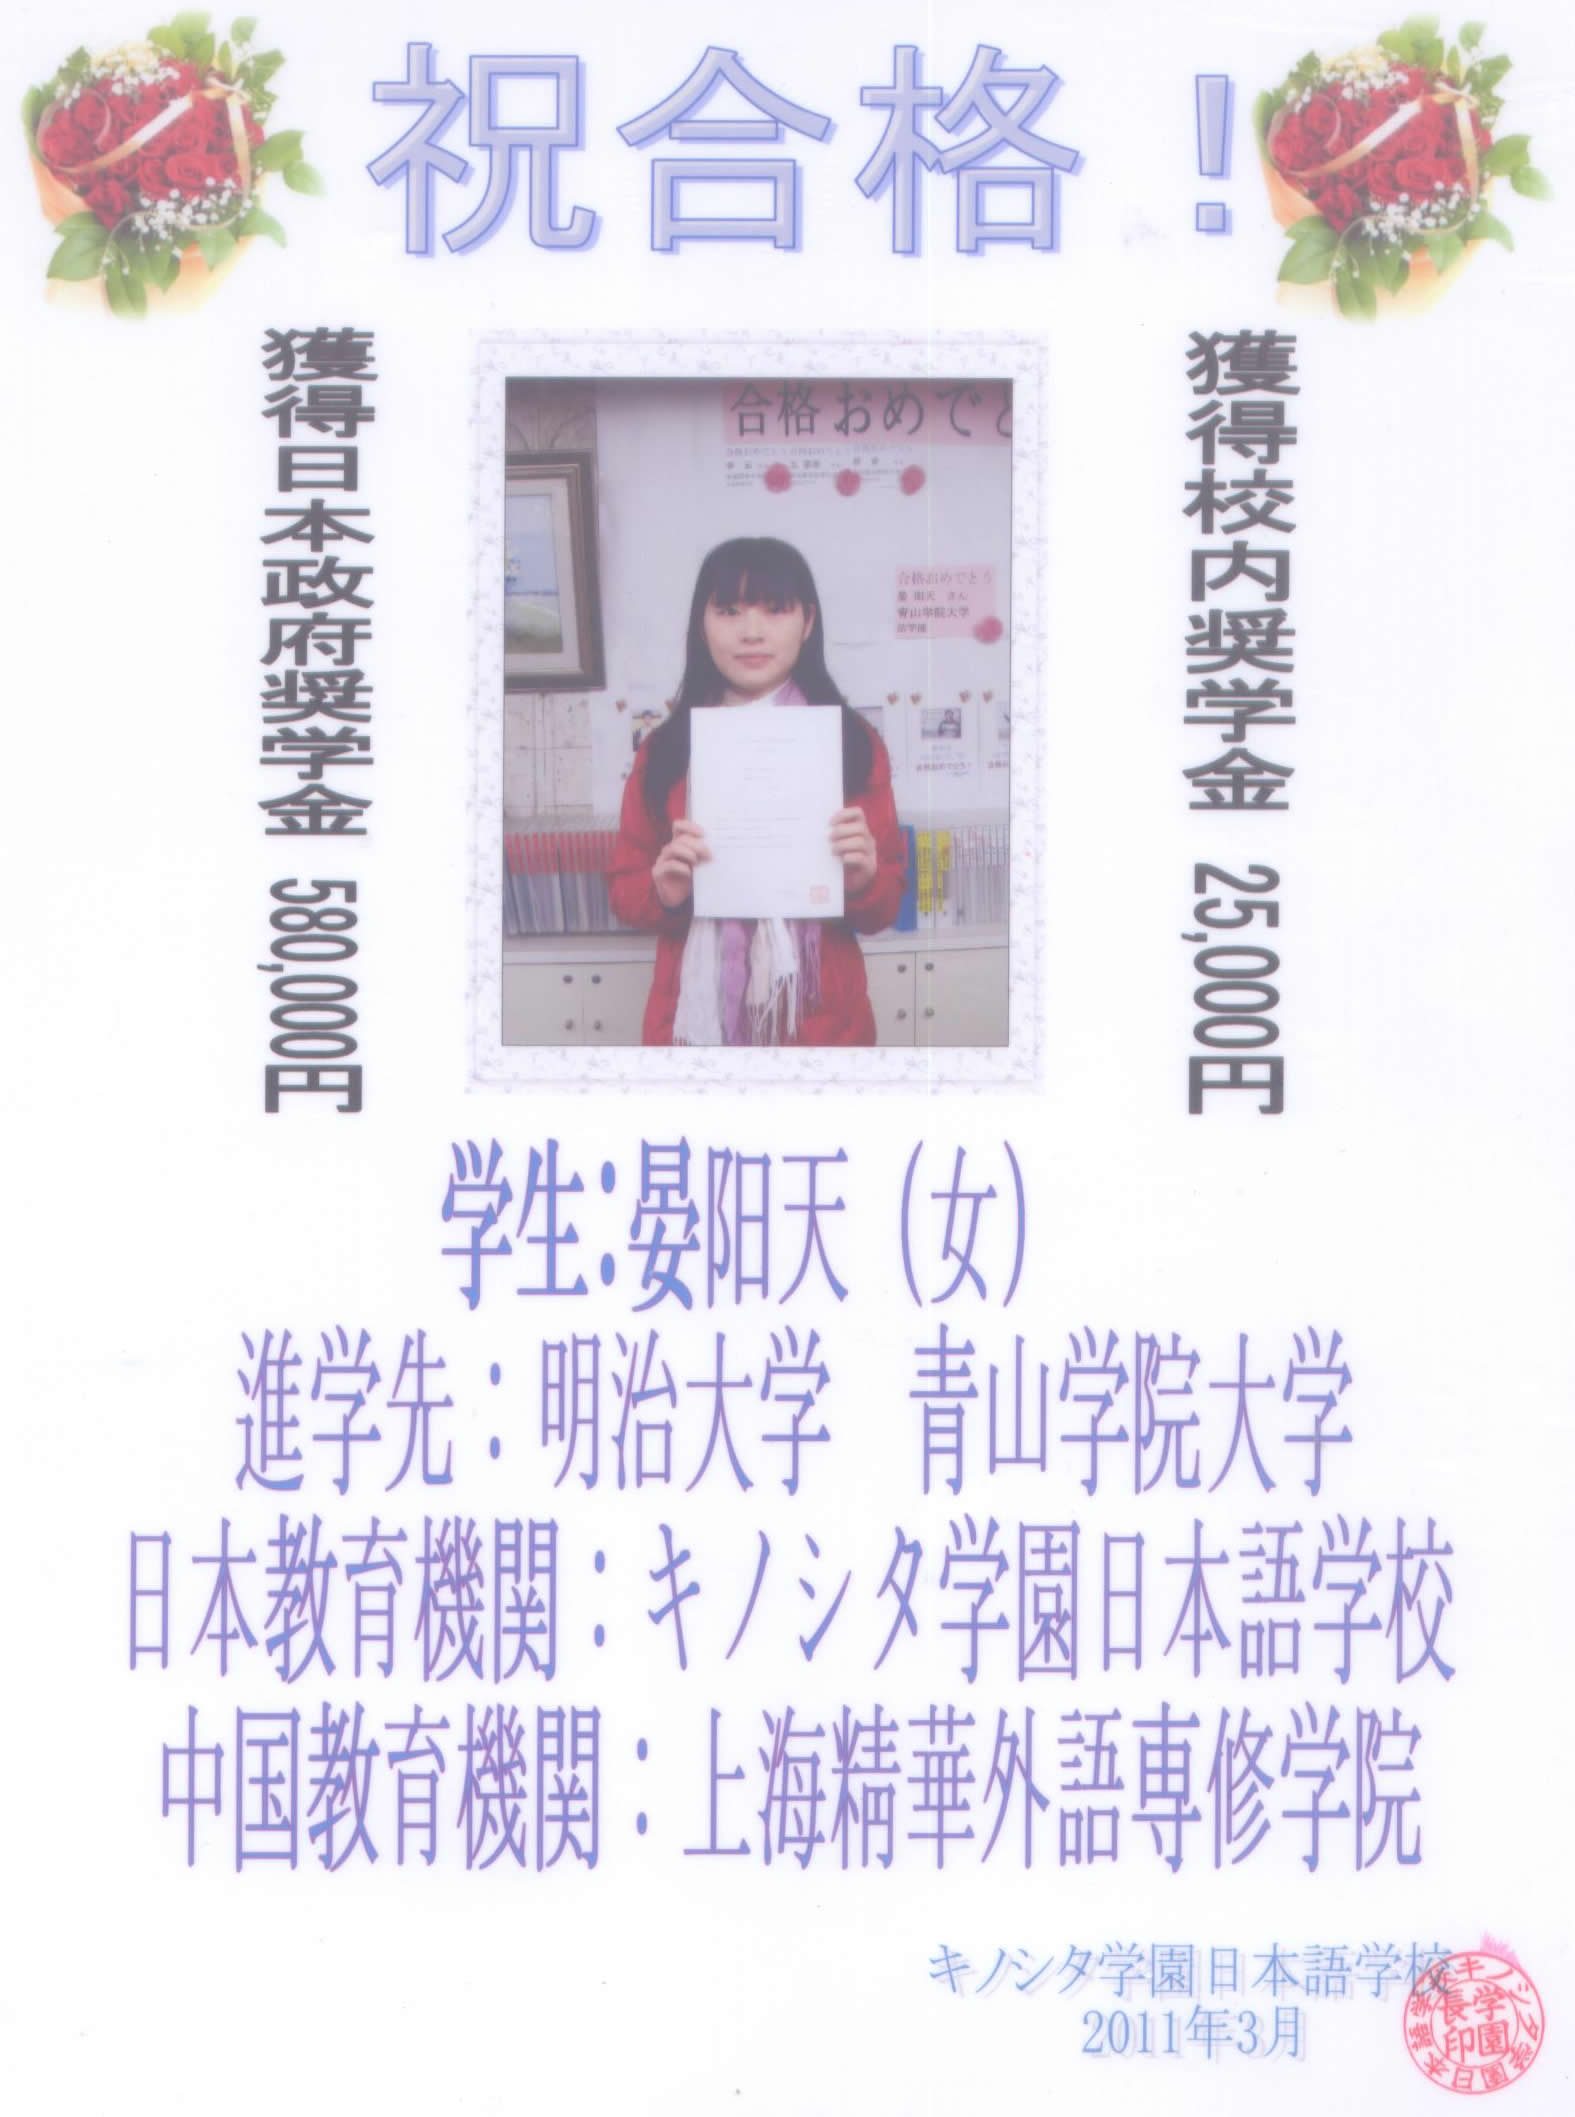 祝合格！
獲得日本政府奨学金 580,000円
獲得校内奨学金 25,000円
合格おめでと
合格おめでとう
晏 阳天 さん
青山学院大学
法学部
学生：晏阳天（女）
進学先：明治大学　青山学院大学
日本教育機関：キノシタ学園日本語学校
中国教育機関：上海精華外語専修学院
キノシタ学園日本語学校
2011年3月
キノシタ学園日本語学
学園長印